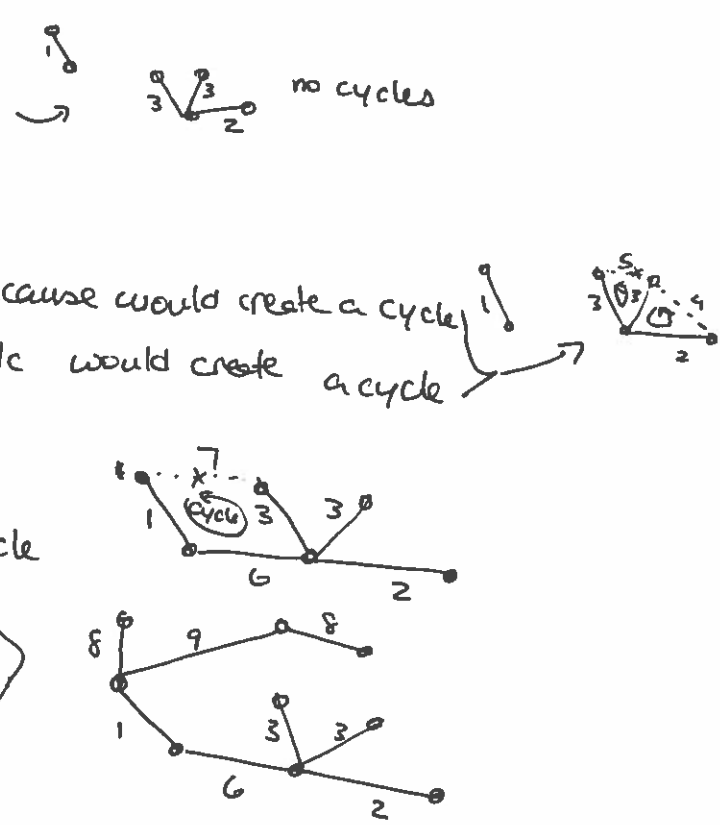 1
3 3 2 no cycles
cause would create a cycle
1
5
3 3 4
2
would create a cycle
7
1 cycle 3 3
cle
6 2
8 9 8
1 3 3
6 2